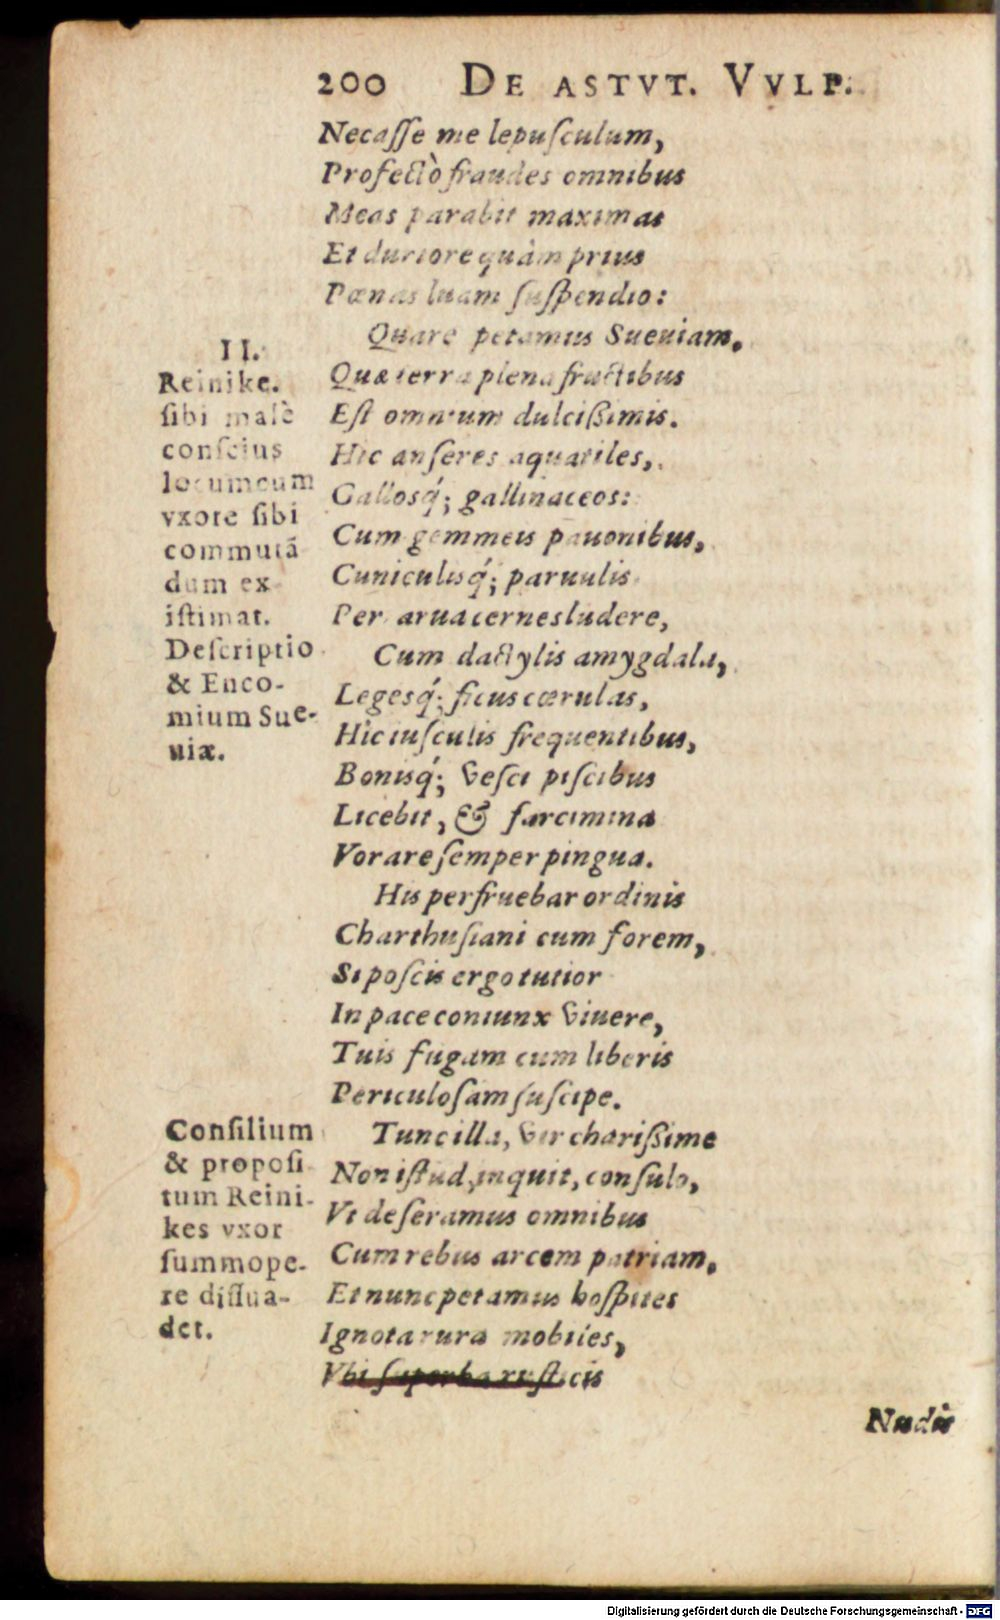 200 DE ASTVT. VVLP.
Necaſſe me lepuſculum,
Profectò fraudes omnibus
Meas parabit maximas
Et duriore quàm prius
Pœnas luam ſuſpendio:
Quare petamus Sueuiam,
Quæ terra plena fructibus
Eſt omnium dulcißimis.
Hic anſeres aquatiles,
Gallosq́; gallinaceos:
Cum gemmeis pauonibus,
Cuniculisq́; paruulis
Per arua cernes ludere,
Cum dactylis amygdala,
Legesq́; ficus cœrulas,
Hic iuſculis frequentibus,
Bonisq́; veſci piſcibus
Licebit, & farcimina
Vorare ſemper pingua.
His perfruebar ordinis
Charthuſiani cum forem,
Si poſcis ergo tutior
In pace coniunx viuere,
Tuis fugam cum liberis
Periculoſam ſuſcipe.
Tunc illa, vir charißime
Non iſtud, inquit, conſulo,
Vt deſeramus omnibus
Cum rebus arcem patriam,
Et nunc petamus hoſpites
Ignota rura mobiles,
Vbi ſuperba ruſticis
Nudis
II.
Reinike.
ſibi malè
conſcius
locum cum
vxore ſibi
commutā
dum ex
iſtimat.
Deſcriptio
& Enco-
mium Sue-
uiæ.
Conſilium
& propoſi
tum Reini-
kes vxor
ſummope-
re diſſua-
det.
Digitalisierung gefördert durch die Deutsche Forschungsgemeinschaft - DFG